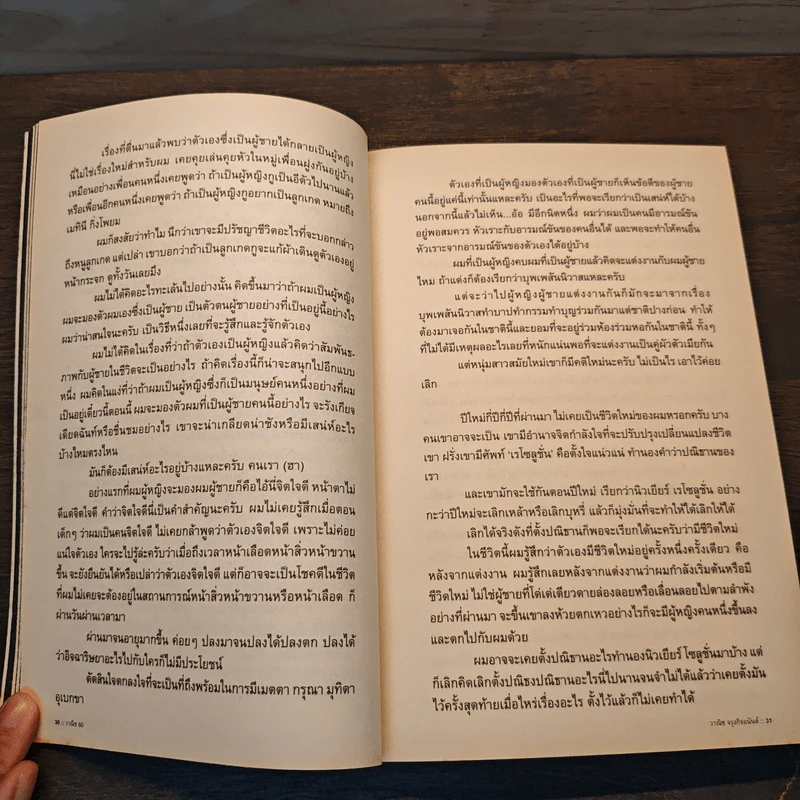 เรื่องที่ตื่นมาแล้วพบว่าตัวเองซึ่งเป็นผู้ชายได้กลายเป็นผู้หญิง
นี่ไม่ใช่เรื่องใหม่สำหรับผม เคยคุยเล่นคุยหัวในหมู่เพื่อนฝูงกันอยู่บ้าง
เหมือนอย่างเพื่อนคนหนึ่งเคยพูดว่า ถ้าเป็นผู้หญิงกูเป็นอีตัวไปนานแล้ว
หรือเพื่อนอีกคนหนึ่งเคยพูดว่า ถ้าเป็นผู้หญิงกูอยากเป็นลูกเกด หมายถึง
เมทินี กิ่งโพยม
ผมก็สงสัยว่าทำไม นึกว่าเขาจะมีปรัชญาชีวิตอะไรที่จะบอกกล่าว
ถึงหนูลูกเกด แต่เปล่า เขาบอกว่าถ้าเป็นลูกเกดกูจะแก้ผ้าเดินดูตัวเองอยู่
หน้ากระจก ดูทั้งวันเลยมึง
ผมไม่ได้คิดอะไรทะเล้นไปอย่างนั้น คิดขึ้นมาว่าถ้าผมเป็นผู้หญิง
ผมจะมองตัวผมเองซึ่งเป็นผู้ชาย เป็นตัวตนผู้ชายอย่างที่เป็นอยู่นี้อย่างไร
ผมว่าน่าสนใจนะครับ เป็นวิธีหนึ่งเลยที่จะรู้สึกและรู้จักตัวเอง
ผมไม่ได้คิดในเรื่องที่ว่าถ้าตัวเองเป็นผู้หญิงแล้วคิดว่าสัมพันธ-
ภาพกับผู้ชายในชีวิตจะเป็นอย่างไร ถ้าคิดเรื่องนี้ก็น่าจะสนุกไปอีกแบบ
หนึ่ง ผมคิดในแง่ที่ว่าถ้าผมเป็นผู้หญิงซึ่งก็เป็นมนุษย์คนหนึ่งอย่างที่ผม
เป็นอยู่เดี๋ยวนี้ตอนนี้ ผมจะมองตัวผมที่เป็นผู้ชายคนนี้อย่างไร จะรังเกียจ
เดียดฉันท์หรือชื่นชมอย่างไร เขาจะน่าเกลียดน่าชังหรือมีเสน่ห์อะไร
บ้างไหมตรงไหน
มันก็ต้องมีเสน่ห์อะไรอยู่บ้างแหละครับ คนเรา (ฮา)
อย่างแรกที่ผมผู้หญิงจะมองผมผู้ชายก็คือไอ้นี่จิตใจดี หน้าตาไม่
ดีแต่จิตใจดี คำว่าจิตใจดีนี่เป็นคำสำคัญนะครับ ผมไม่เคยรู้สึกเมื่อตอน
เด็กๆ ว่าผมเป็นคนจิตใจดี ไม่เคยกล้าพูดว่าตัวเองจิตใจดี เพราะไม่ค่อย
แน่ใจตัวเอง ใครจะไปรู้ล่ะครับว่าเมื่อถึงเวลาหน้าเลือดหน้าสิ่วหน้าขวาน
ขึ้น จะยังยืนยันได้หรือเปล่าว่าตัวเองจิตใจดี แต่ก็อาจจะเป็นโชคดีในชีวิต
ที่ผมไม่เคยจะต้องอยู่ในสถานการณ์หน้าสิ่วหน้าขวานหรือหน้าเลือด ก็
ผ่านวันผ่านเวลามา
ผ่านมาจนอายุมากขึ้น ค่อยๆ ปลงมาจนปลงได้ปลงตก ปลงได้
ว่าอิจฉาริษยาอะไรไปกับใครก็ไม่มีประโยชน์
ตัดสินใจตกลงใจที่จะเป็นที่ถึงพร้อมในการมีเมตตา กรุณา มุทิตา
อุเบกขา
30 :: วาณิช 60
ตัวเองที่เป็นผู้หญิงมองตัวเองที่เป็นผู้ชายก็เห็นข้อดีของผู้ชาย
คนนี้อยู่แค่นี้เท่านั้นแหละครับ เป็นอะไรที่พอจะเรียกว่าเป็นเสน่ห์ได้บ้าง
นอกจากนี้แล้วไม่เห็น...อ้อ มีอีกนิดหนึ่ง ผมว่าผมเป็นคนมีอารมณ์ขัน
อยู่พอสมควร หัวเราะกับอารมณ์ขันของคนอื่นได้ และพอจะทำให้คนอื่น
หัวเราะจากอารมณ์ขันของตัวเองได้อยู่บ้าง
ผมที่เป็นผู้หญิงคบผมที่เป็นผู้ชายแล้วคิดจะแต่งงานกับผมผู้ชาย
ไหม ถ้าแต่งก็ต้องเรียกว่าบุพเพสันนิวาสแหละครับ
แต่จะว่าไปผู้หญิงผู้ชายแต่งงานกันก็มักจะมาจากเรื่อง
บุพเพสันนิวาสทำบาปทำกรรมทำบุญร่วมกันมาแต่ชาติปางก่อน ทำให้
ต้องมาเจอกันในชาตินี้และยอมที่จะอยู่ร่วมห้องร่วมหอกันในชาตินี้ ทั้งๆ
ที่ไม่ได้มีเหตุผลอะไรเลยที่หนักแน่นพอที่จะแต่งงานเป็นคู่ผัวตัวเมียกัน
แต่หนุ่มสาวสมัยใหม่เขาก็มีคติใหม่นะครับ ไม่เป็นไร เอาไว้ค่อย
เลิก
ปีใหม่กี่ปีกี่ปีที่ผ่านมา ไม่เคยเป็นชีวิตใหม่ของผมหรอกครับ บาง
คนเขาอาจจะเป็น เขามีอำนาจจิตกำลังใจที่จะปรับปรุงเปลี่ยนแปลงชีวิต
เขา ฝรั่งเขามีศัพท์ 'เรโซลูชั่น' คือตั้งใจแน่วแน่ ทำนองคำว่าปณิธานของ
เรา
และเขามักจะใช้กันตอนปีใหม่ เรียกว่านิวเยียร์ เรโซลูชั่น อย่าง
กะว่าปีใหม่จะเลิกเหล้าหรือเลิกบุหรี่ แล้วก็มุ่งมั่นที่จะทำให้ได้เลิกให้ได้
เลิกได้จริงดังที่ตั้งปณิธานก็พอจะเรียกได้นะครับว่ามีชีวิตใหม่
ในชีวิตนี้ผมรู้สึกว่าตัวเองมีชีวิตใหม่อยู่ครั้งหนึ่งครั้งเดียว คือ
หลังจากแต่งงาน ผมรู้สึกเลยหลังจากแต่งงานว่าผมกำลังเริ่มต้นหรือมี
ชีวิตใหม่ ไม่ใช่ผู้ชายที่โด่เด่เดียวดายล่องลอยหรือเลื่อนลอยไปตามลำพัง
อย่างที่ผ่านมา จะขึ้นเขาลงห้วยตกเหวอย่างไรก็จะมีผู้หญิงคนหนึ่งขึ้นลง
และตกไปกับผมด้วย
ผมอาจจะเคยตั้งปณิธานอะไรทำนองนิวเยียร์ โซลูชั่นมาบ้าง แต่
ก็เลิกคิดเลิกตั้งปณิธงปณิธานอะไรนี่ไปนานจนจำไม่ได้แล้วว่าเคยตั้งมัน
ไว้ครั้งสุดท้ายเมื่อไหร่เรื่องอะไร ตั้งไว้แล้วก็ไม่เคยทำได้
วาณิช จรุงกิจอนันต์ :: 31